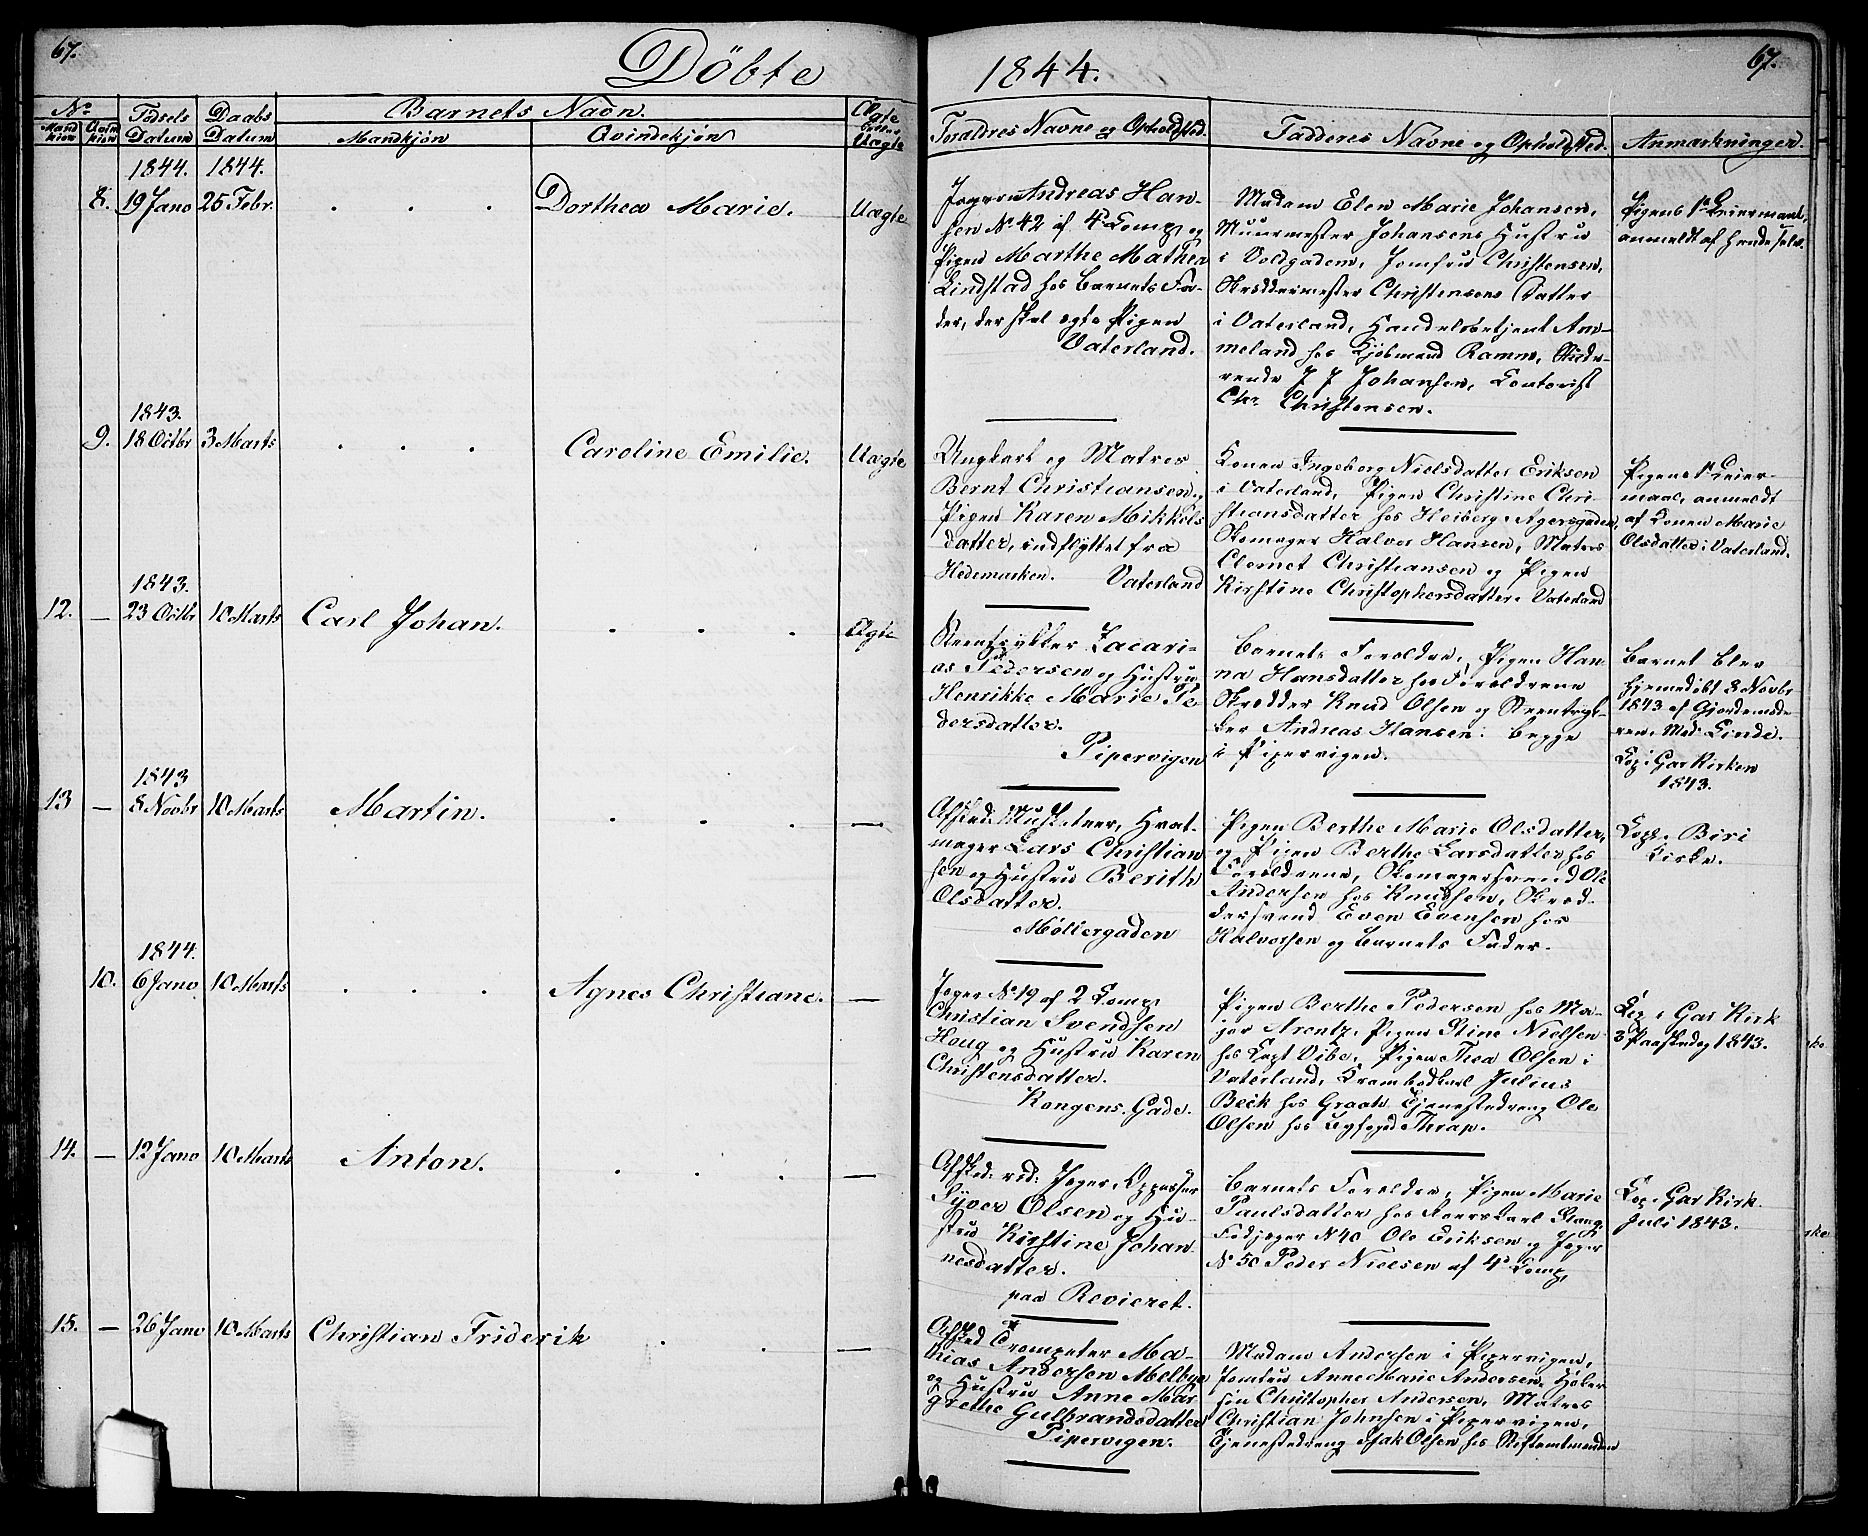 67.
Döbte
1844.
67.
No
Mand kiön
Qvin kiön
Födsels Datum
Daabs Datum
Barnets Navn.
Mandkjön
Qvindekjön
Ægte eller Uægte
Foraldres Navne og Opholdsted.
Fadderes Navne og Opholdsted.
Anmærkninger.
1844. 1844.
8. 19 Janv 25 Febr. Dorthea Marie. Uægte
Jægeren Andreas Han-
sen No 42 af 4de Comp. og
Pigen Marthe Mathea
Lindstad hos Barnets Fa-
der, der skal ægte Pigen
Vaterland.
Madam Elen Marie Johansen,
Muurmester Johansens Hustru
i Voldgaden, Jomfru Christensen,
Skræddermester Christensens Datter
i Vaterland, Handelsbetjent Am-
meland hos Kjöbmand Ramm, Stude-
rende J J Johansen, Contorist
Chr. Christensen.
Pigens 1ste Leiermaal,
anmeldt af hende selv.
1843.
9. 18 Octbr 3 Marts Caroline Emilie. Uægte
Ungkarl og Matros
Bernt Christiansen og
Pigen Karen Mikkels
datter, indflyttet fra
Hedemarken. Vaterland
Konen Ingeborg Nielsdatter Eriksen
i Vaterland, Pigen Christine Chri-
stiansdatter hos Heiberg i Agersgaden,
Skomager Halvor Hansen, Matros
Clemet Christiansen og Pigen
Kirstine Christophersdatter i Vaterland
Pigens 1ste Leier-
maal, anmeldt
af Konen Marie
Olsdatter i Vaterland.
1843.
12. — 23 Octbr 10 Marts Carl Johan. Ægte
Steentrykker Zacari-
as Pedersen og Hustru
Henrikke Marie Pe-
dersdatter.
Pipervigen
Barnets Forældre, Pigen Han-
na Hansdatter hos Forældrene
Skrædder Knud Olsen og Steentryk-
ker Andreas Hansen. begge
i Pipervigen.
Barnet blev
hjemmedöbt 8 Novbr
1843 af Gjordemode-
ren, Mad. Linde.
Cop. i Gar Kirken
1843.
1843
13 — 8 Novbr 10 Marts Martin. —
Afsked: Musketeer, Hvat-
mager Lars Christian
sen og Hustru Berith
Olsdatter.
Möllergaden
Pigen Berthe Marie Olsdatter,
og Pigen Berthe Larsdatter hos
Forældrene, Skomagersvend Ole
Andersen hos Knudsen, Skræd-
dersvend Even Evensen hos
Halvorsen og Barnets Fader.
Cop. i Biri
Kirke.
1844.
10. 6 Janv 10 Marts Agnes Christiane. —
Jæger No 19 af 2 Comp.
Christian Svendsen
Houg og Hustru Karen
Christensdatter.
Kongens Gade.
Pigen Berthe Pedersen hos Ma-
jor Arentz, Pigen Stine Nielsen
hos Capt Vibe, Pigen Thea Olsen i
Vaterland, Krambodkarl Julius
Beck hos Graah, Tjenestedreng Ole
Olsen hos Byfoged Thrap.
Cop. i Gar Kirk
3 Paaskedag 1843.
14. — 12 Janv 10 Marts Anton. —
Afsked: rid: Jæger, Oppasser
Syver Olsen og Hu-
stru Kirstine Johan
nesdatter.
paa Revieret.
Barnets Forældre, Pigen Marie
Paulsdatter hos Stang,
Fodjæger No 40 Ole Eriksen og Jæger
No 50 Peder Nielsen af 4de Comp.
Cop. i Gar Kirk
Juli 1843.
15. — 26 Janv 10 Marts Christian Friderik —
Afsked Trompeter Ma-
thias Andersen Melbye
og Hustru Anne Mar
grethe Gulbrandsdatter
Pipervigen.
Madam Andersen i Pipervigen,
Jomfru Anne Marie Andersen,
Christopher Andersen, Matros
Christian Johnsen i Pipervigen,
Tjenestedreng Isak Olsen hos Stiftamtmanden